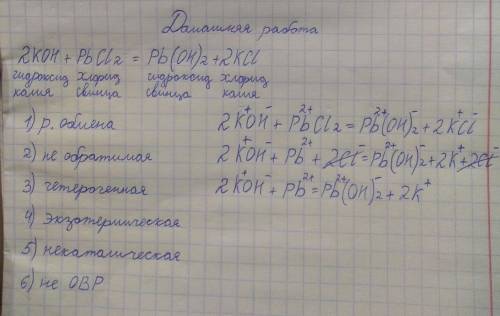 Дамашняя работа
2KOH + PbCl₂ = Pb(OH)₂ + 2KCl
гидроксид хлорид гидроксид хлорид
калия свинца свинца калия
1) р. обмена
2) не обратимая
3) гетерогенная
4) экзотермическая
5) некаталическая
6) не ОВР
2K⁺OH⁻ + Pb²⁺Cl₂ = Pb²⁺(OH)⁻₂ + 2K⁺Cl⁻
2K⁺OH⁻ + Pb²⁺ + 2Cl⁻ = Pb²⁺(OH)⁻₂ + 2K⁺ + 2Cl⁻
2K⁺OH⁻ + Pb²⁺ = Pb²⁺(OH)⁻₂ + 2K⁺